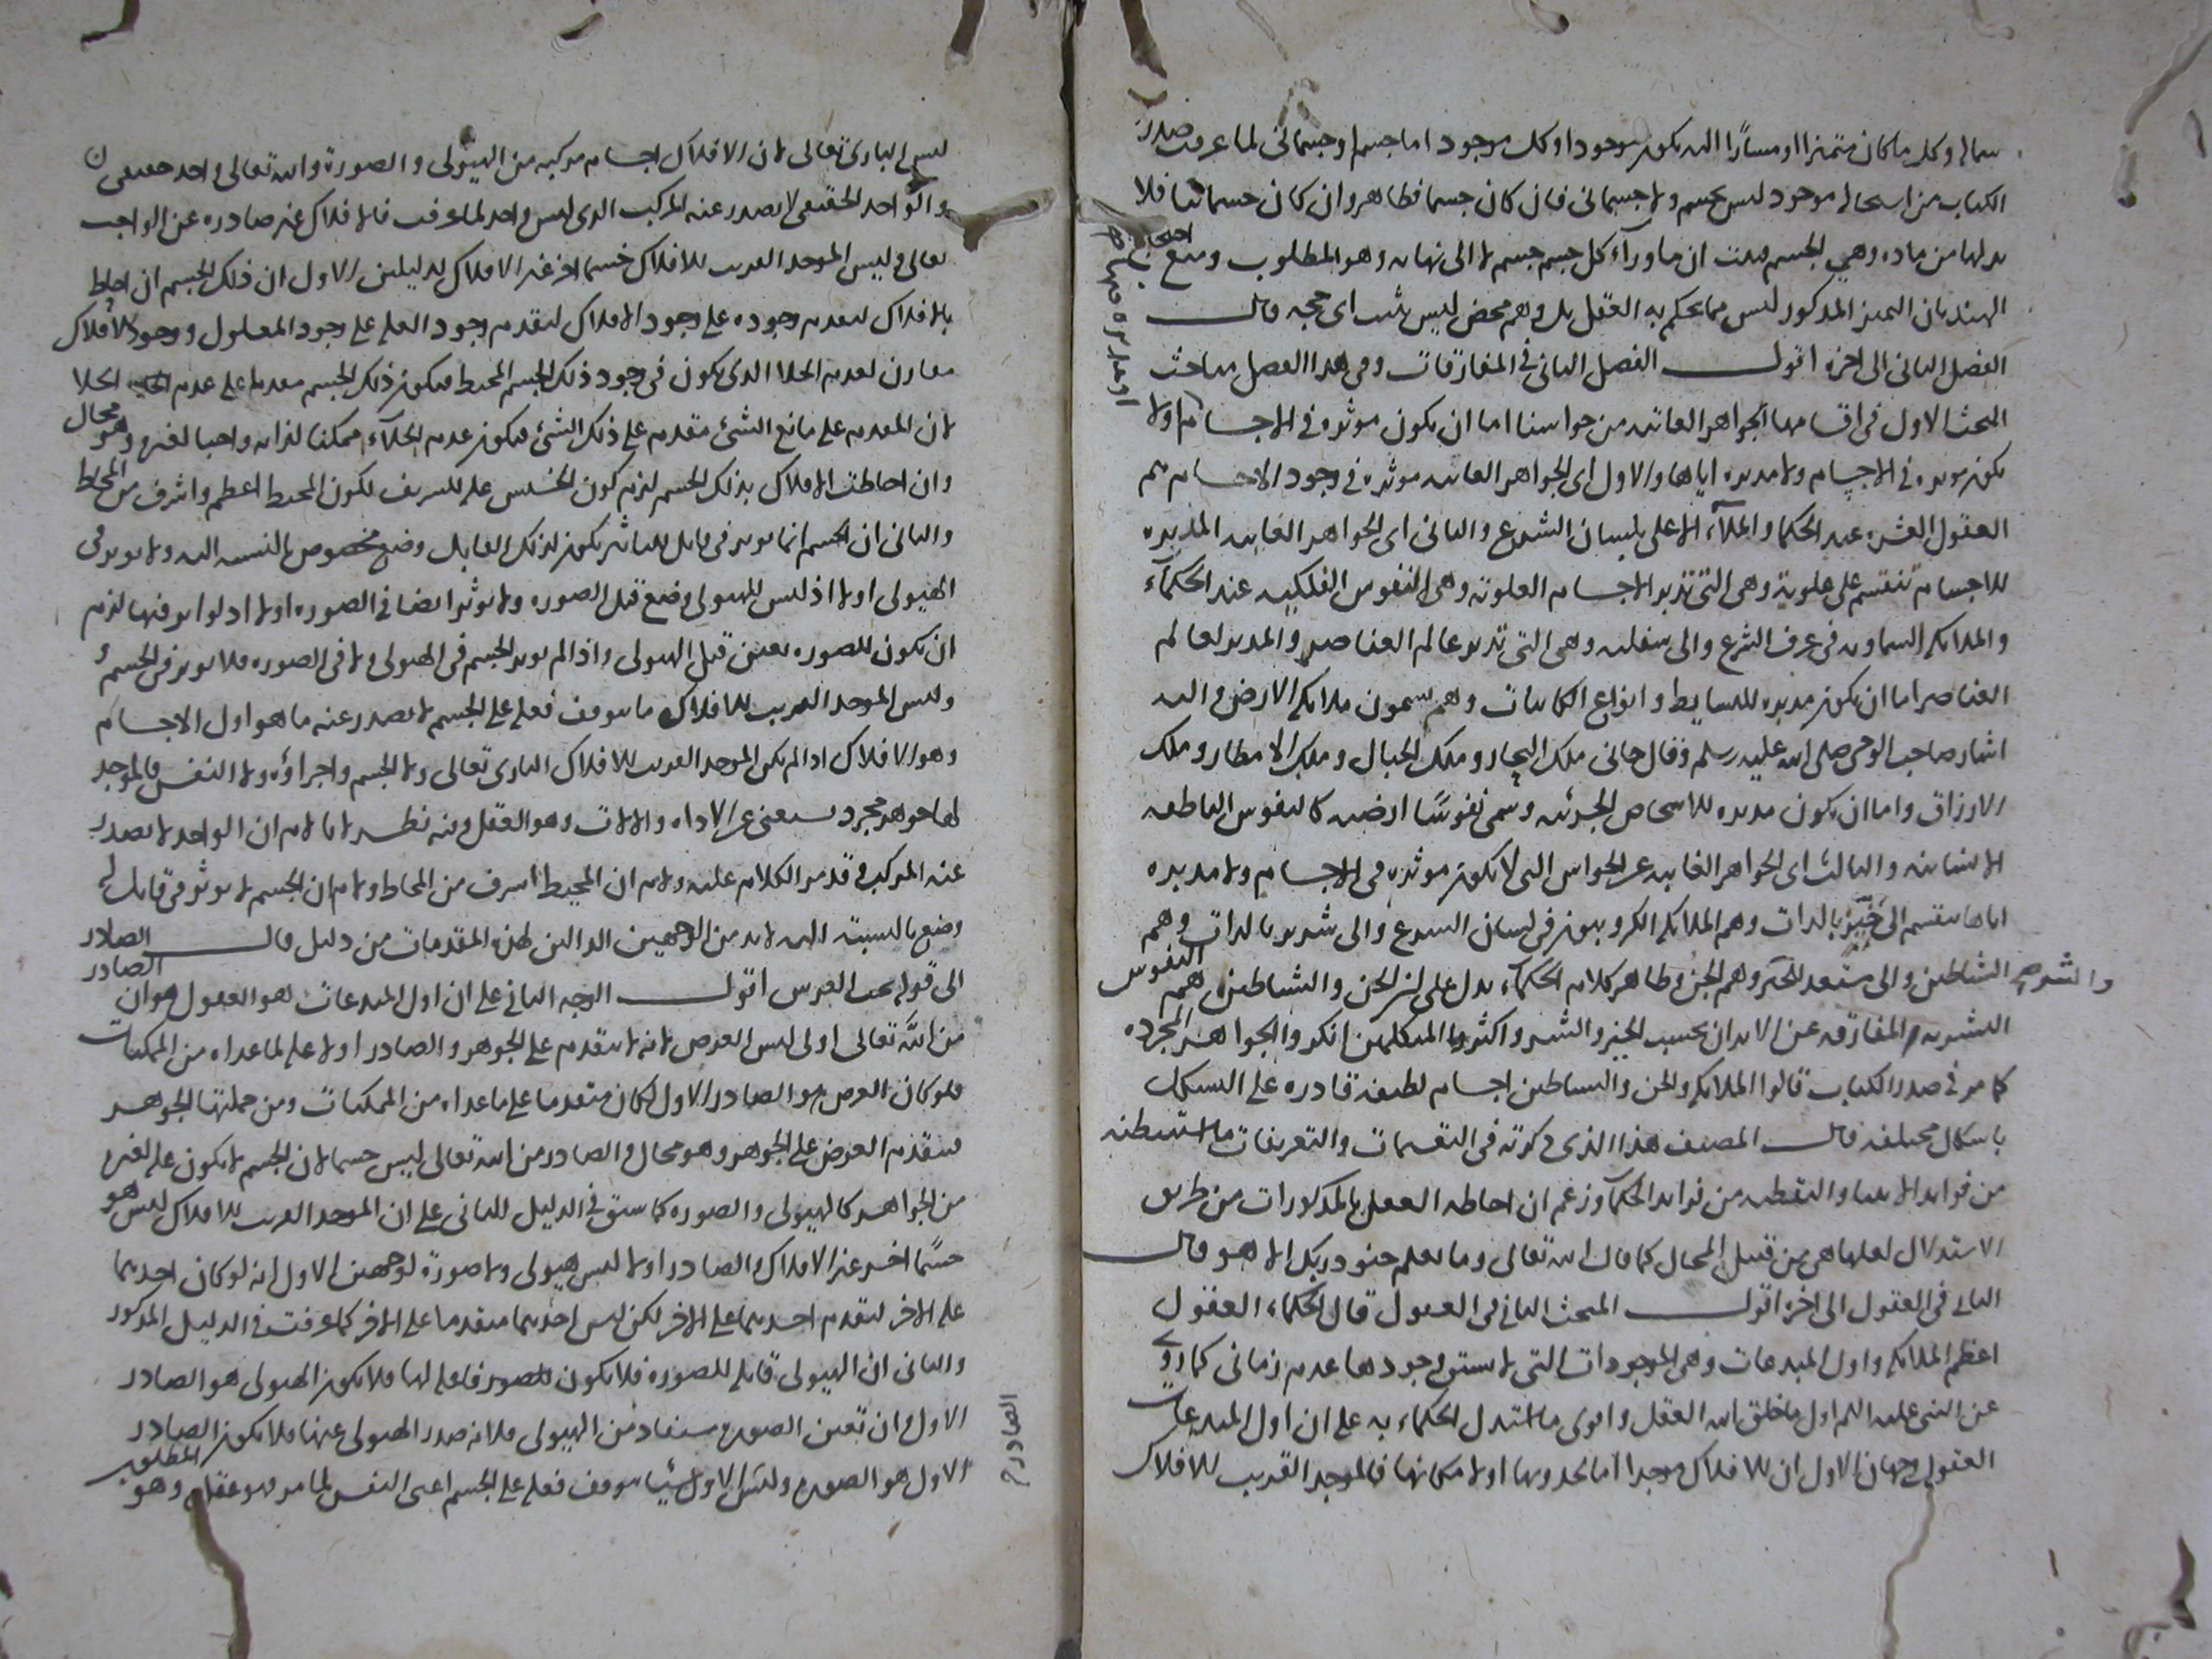 شماله وكل ما كان متميزا او مشارًا اليه يكون موجودا وكل موجود اما جسم او جسمانى لما عرفت صدر
الكتاب من استحاله موجود ليس بجسم ولا جسمانى فان كان جسما فظاهر وان كان جسمانيا فلا
بد لها من ماده وهى الجسم فثبت ان ما ورآء كل جسم جسم لا الى نهايه وهو المطلوب ومنع احتجاج
الهند بان التميز المذكور ليس مما يحكم به العقل بل وهم محض ليس يثبت اى حجه قال
الفصل الثانى الى اخره اقول الفصل الثانى فى المفارقات وفى هذا الفصل مباحث
المبحث الاول فى اقسامها الجواهر الغائبه من حواسنا اما ان يكون موثره فى الاجسام اولا
يكون موثره فى الاجسام ولا مدبره اياها والاول اى الجواهر الغائبه موثره فى وجود الاجسام هم
العقول العشره عند الحكما والملآء الاعلى بلسان الشرع والثانى اى الجواهر الغايبه المدبره
للاجسام تنقسم على علوية وهى التى تدبر الاجسام العلوته وهى النفوس الفلكيه عند الحكمآء
والملايكه السماويه فى عرف الشرع والى سفليه وهى التى تدبر عالم العناصر والمدبر لعالم
العناصر اما ان يكون مدبره للبسايط وانواع الكاينات وهم يسمون ملايكه الارض واليه
اشار صاحب الوحى صلى الله عليه وسلم وقال جانى ملك البحار وملك الجبال وملك الامطار وملك
الارزاق واما ان يكون مدبره للاشخاص الجزئيه وسمى نفوسًا ارضيه كالنفوس الناطقه
الانسانيه والثالث اى الجواهر الغايبه عن الحواس التى لا يكون موثره فى الاجسام ولا مدبره
اياها ينقسم الى خيّر بالذات وهم الملايكه الكروبيون فى لسان الشرع والى شرير بالذات وهم
الشياطين والى مستعد للخير والشر وهم الجن وظاهر كلام الحكمآء يدل على ان الجن والشياطين هم النفوس
البشريه المفارقه عن الابدان بحسب الخير والشر واكثر المتكلمين انكروا الجواهر المجرده
كما مر فى صدر الكتاب قالوا الملايكه والجن والشياطين اجسام لطيفه قادره على التشكل
باشكال مختلفه قال المصنف هذا الذى ذكرته فى التقسيمات والتعريفات ما استنبطته
من فوايد الانبيا والتقطته من فوايد الحكمآ وزعم ان احاطه العقل بالمذكورات من طريق
الاستدلال لعلها هى من قبيل المحال كما قال الله تعالى وما يعلم جنود ربك الا هو قال
الثانى فى العقول الى اخره اقول المبحث الثانى فى العقول قال الحكماء العقول
اعظم الملايكه واول المبدعات وهى الموجودات التى لا يسبق وجودها عدم زمانى كما روى
عن النبى عليه السلم اول ما خلق الله العقل واقوى ما استدل الحكماء به على ان اول المبدعات
العقول وجهان الاول ان للافلاك موجدا اما لحدوثها اولا مكانها فالموجد القريب للافلاك
ليس البارى تعالى لان الافلاك اجسام مركبه من الهيولى والصورة والله تعالى واحد حقيقى
والواحد الحقيقى لا يصدر عنه المركب الذى ليس واحد لما عرفت فالافلاك غير صادره عن الواجب
تعالى وليس الموجد القريب للافلاك جسما اخر غير الافلاك لدليلين الاول ان ذلك الجسم ان احاط
بالافلاك ليقدم وجوده على وجود الافلاك ليقدم وجود العله على وجود المعلول ووجود الافلاك
مقارن لعدم الخلا الذى يكون فى وجود ذلك الجسم المحيط فيكون ذلك الجسم مقدما على عدم الخلا
لان المقدم على مانع الشئ مقدم على ذلك الشئ فيكون عدم الخلآء ممكنا لذاته واجبا لغيره وهو محال
وان احاطت الافلاك بذلك الجسم لزم كون الخسيس عله للشريف لكون المحيط اعظم واشرف من المحاط
والثانى ان الجسم انما يوثر فى قابل للتاثير يكون لذلك القابل وضع مخصوص بالنسبه اليه ولا يوثر فى
الهيولى اولا اذ ليس للهيولى وضع قبل الصوره ولا يوثر ايضا فى الصوره اولا اذ لو اثر فيها لزم
ان يكون للصوره تعين قبل الهيولى واذا لم يوثر الجسم فى الهيولى ولا فى الصوره فلا يوثر فى الجسم
وليس الموجد القريب للافلاك ما يتوقف فعله على الجسم لا يصدر عنه ما هو اول الاجسام
وهو الافلاك اذا لم يكن الموجد القريب للافلاك البارى تعالى ولا الجسم واجزاؤه ولا النفس فالموجد
لها جوهر مجرد يستغنى عن الاداه والالات وهو العقل وفيه نظر لانا لا نم ان الواحد لا يصدر
عنه المركب وقد مر الكلام عليه ولا نم ان المحيط اشرف من المحاط ولا نم ان الجسم لا يوثر فى قابل له
وضع بالنسبة اليه لا بد من الوجهين الدالين لهذه المقدمات من دليل قال الصادر
الى قوله اقول الوجه الثانى على ان اول المبدعات هو العقول هو ان الصادر
من الله تعالى اولى ليس العرض لانه لا يتقدم على الجوهر والصادر اولا عله لما عداه من الممكنات
فلو كان العرض هو الصادر الاول لكان متقدما على ما عداه من الممكنات ومن جملتها الجوهر
فيتقدم العرض على الجوهر وهو محال والصادر من الله تعالى ليس جسما لان الجسم لا يكون عله لغيره
من الجواهر كالهيولى والصوره كما سبق فى الدليل الثانى على ان الموجد القريب للافلاك ليس هو
جسمًا اخر غير الافلاك والصادر اولا ليس هيولى ولا صورة لوجهين الاول انه لو كان احديهما
عله الاخر لتقدم احديهما على الاخر لكن ليس احديهما متقدما على الاخر كما عرفت فى الدليل المذكور
والثانى ان الهيولى قابله للصوره فلا يكون فاعله لها فلا يكون الهيولى هو الصادر
الاول وان تعين الصوره مستفاد من الهيولى فلا يكون الصادر
الاول هو الصوره وليس الاول شيًا يتوقف فعله على الجسم اعنى النفس لما مر فهو عقل وهو المطلوب